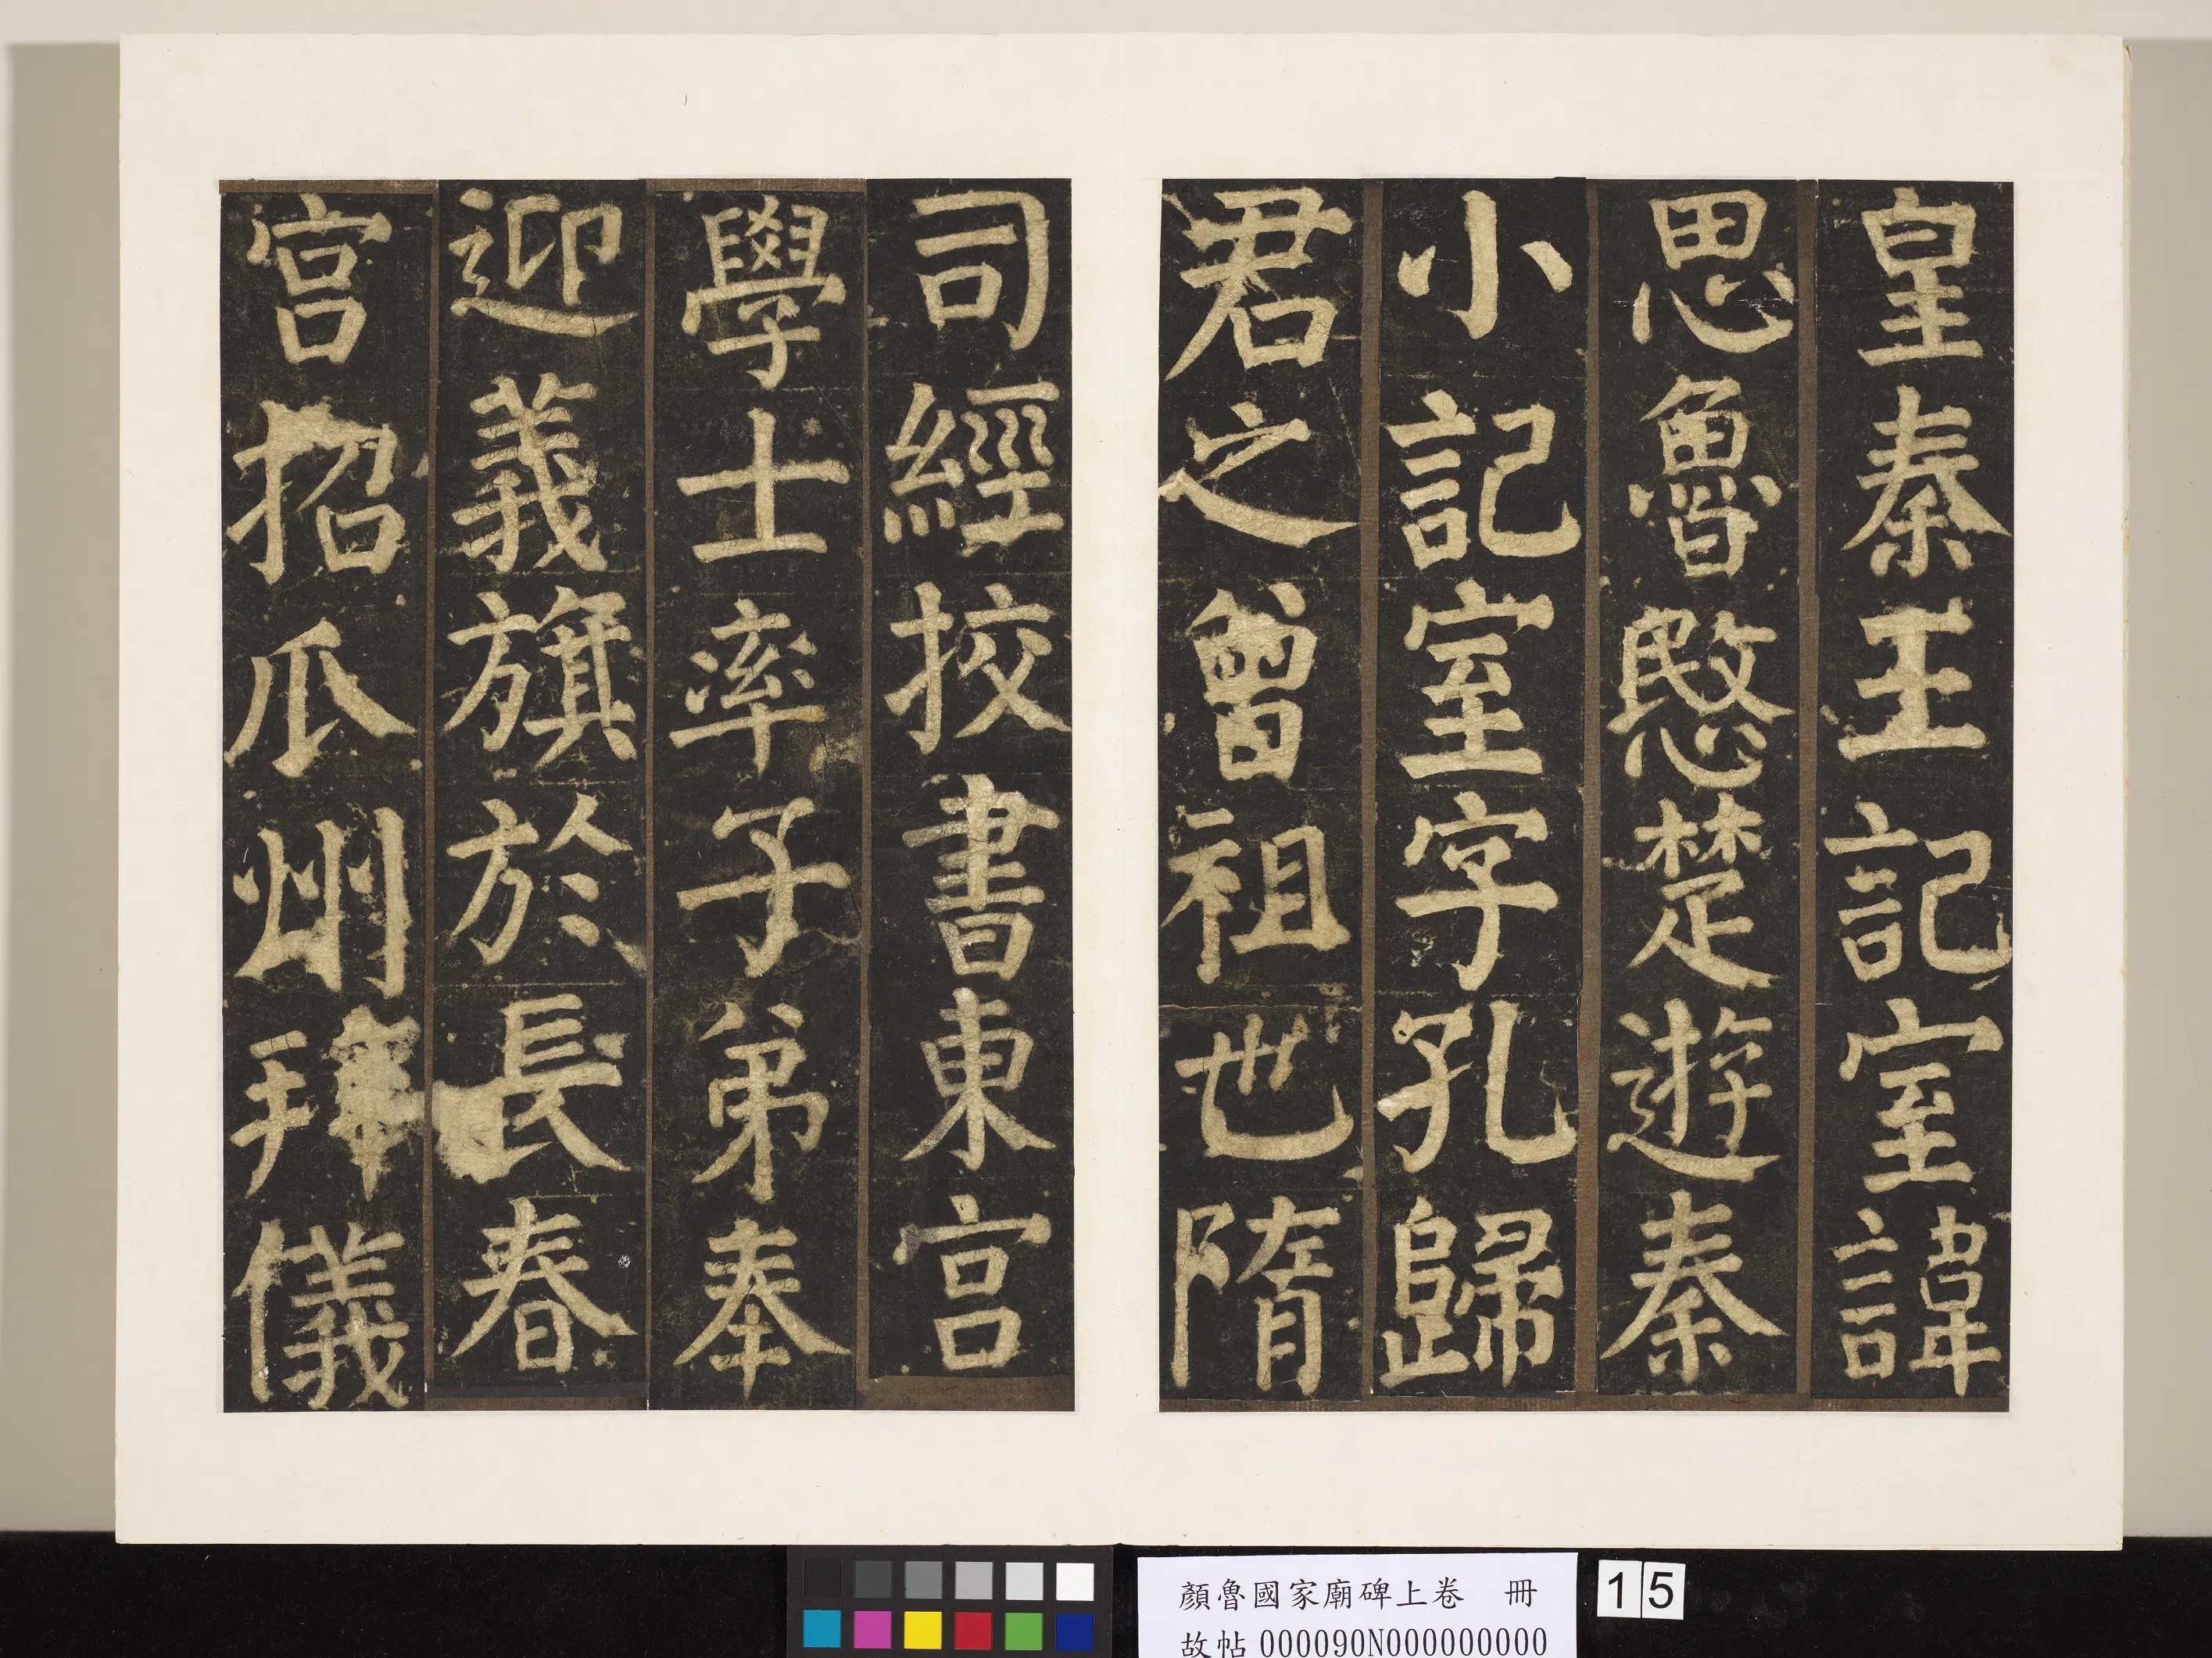 皇秦王記室諱
思魯愍楚遊秦
小記室字孔歸
君之曾祖也隋
司經挍書東宮
學士率子弟奉
迎義旗於長春
宮招瓜州拜儀
顏魯國家廟碑上卷 冊
故帖000090N000000000
15